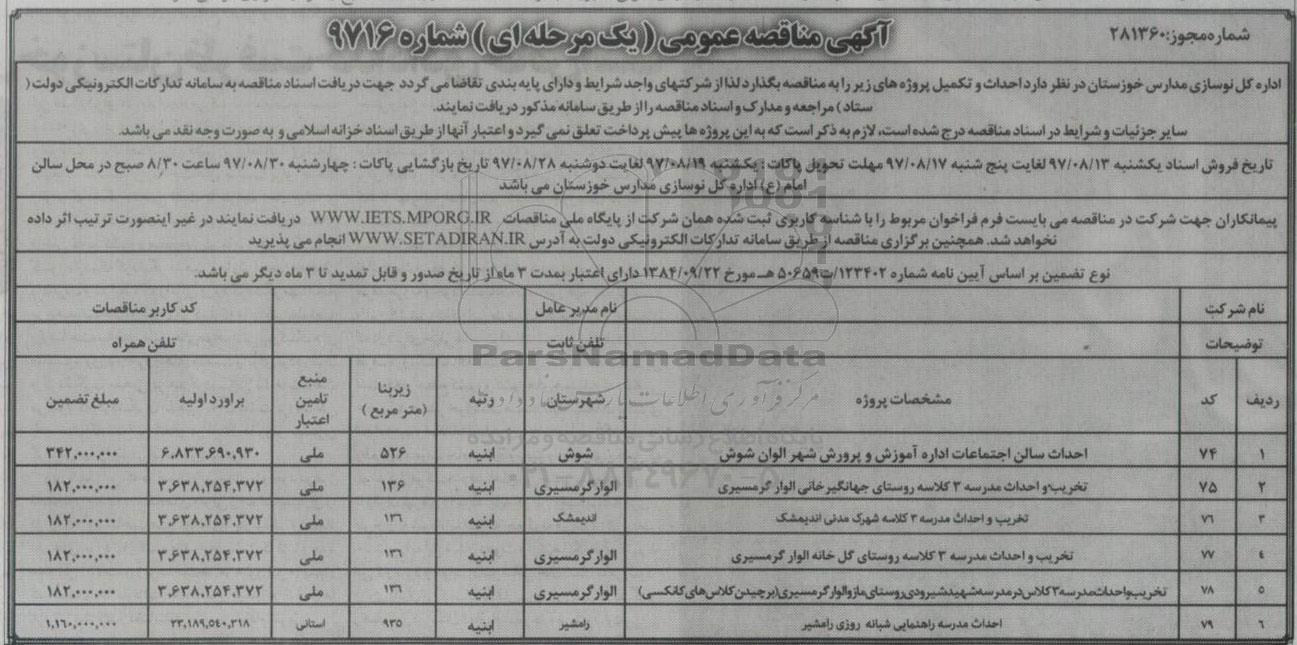 شماره مجوز: ۲۸۱۳۶۰
آگهی مناقصه عمومی ( یک مرحله ای ) شماره ۹۷۱۶
اداره کل نوسازی مدارس خوزستان در نظر دارد احداث و تکمیل پروژه های زیر را به مناقصه بگذارد لذا از شرکتهای واجد شرایط و دارای پایه بندی تقاضا می گردد جهت دریافت اسناد مناقصه به سامانه تدارکات الکترونیکی دولت (
ستاد ) مراجعه و مدارک و اسناد مناقصه را از طریق سامانه مذکور دریافت نمایند.
سایر جزئیات و شرایط در اسناد مناقصه درج شده است، لازم به ذکر است که به این پروژه ها پیش پرداخت تعلق نمی گیرد و اعتبار آنها از طریق اسناد خزانه اسلامی و به صورت وجه نقد می باشد.
تاریخ فروش اسناد یکشنبه ۹۷/۰۸/۱۳ لغایت پنج شنبه ۹۷/۰۸/۱۷ مهلت تحویل پاکات : یکشنبه ۹۷/۰۸/۱۹ لغایت دوشنبه ۹۷/۰۸/۲۸ تاریخ بازگشایی پاکات : چهارشنبه ۹۷/۰۸/۳۰ ساعت ۸/۳۰ صبح در محل سالن
امام (ع) اداره کل نوسازی مدارس خوزستان می باشد
پیمانکاران جهت شرکت در مناقصه می بایست فرم فراخوان مربوط را با شناسه کاربری ثبت شده همان شرکت از پایگاه ملی مناقصات WWW.IETS.MPORG.IR دریافت نمایند در غیر اینصورت ترتیب اثر داده
نخواهد شد. همچنین برگزاری مناقصه از طریق سامانه تدارکات الکترونیکی دولت به آدرس WWW.SETADIRAN.IR انجام می پذیرید
نوع تضمین بر اساس آیین نامه شماره ۱۲۳۴۰۲/ت۵۰۶۵۹ هـ مورخ ۱۳۸۴/۰۹/۲۲ دارای اعتبار بمدت ۳ ماه از تاریخ صدور و قابل تمدید تا ۳ ماه دیگر می باشد.
نام شرکت نام مدیر عامل کد کاربر مناقصات
توضیحات تلفن ثابت تلفن همراه
ردیف کد مشخصات پروژه شهرستان رتبه زیربنا (متر مربع ) منبع تامین اعتبار براورد اولیه مبلغ تضمین
۱ ۷۴ احداث سالن اجتماعات اداره آموزش و پرورش شهر الوان شوش شوش ابنیه ۵۲۶ ملی ۶،۸۳۳،۶۹۰،۹۳۰ ۳۴۲،۰۰۰،۰۰۰
۲ ۷۵ تخریب و احداث مدرسه ۳ کلاسه روستای جهانگیرخانی الوار گرمسیری الوارگرمسیری ابنیه ۱۳۶ ملی ۳،۶۳۸،۲۵۴،۳۷۲ ۱۸۲،۰۰۰،۰۰۰
۳ ۷۶ تخریب و احداث مدرسه ۳ کلاسه شهرک مدنی اندیمشک اندیمشک ابنیه ۱۳۶ ملی ۳،۶۳۸،۲۵۴،۳۷۲ ۱۸۲،۰۰۰،۰۰۰
۴ ۷۷ تخریب و احداث مدرسه ۳ کلاسه روستای گل خانه الوار گرمسیری الوارگرمسیری ابنیه ۱۳۶ ملی ۳،۶۳۸،۲۵۴،۳۷۲ ۱۸۲،۰۰۰،۰۰۰
۵ ۷۸ تخریب و احداث مدرسه ۳ کلاس در مدرسه شهید شیرودی روستای مازو الوار گرمسیری (برچیدن کلاس های کانکسی) الوارگرمسیری ابنیه ۱۳۶ ملی ۳،۶۳۸،۲۵۴،۳۷۲ ۱۸۲،۰۰۰،۰۰۰
۶ ۷۹ احداث مدرسه راهنمایی شبانه روزی رامشیر رامشیر ابنیه ۹۳۵ استانی ۲۳،۱۸۹،۵۴۰،۳۱۸ ۱،۱۶۰،۰۰۰،۰۰۰
ParsNamadData
مرکز فرآوری اطلاعات پارس نماد داده ها
پایگاه اطلاع رسانی مناقصه و مزایده
۰۲۱-۸۸۳۴۹۶۷۰-۵